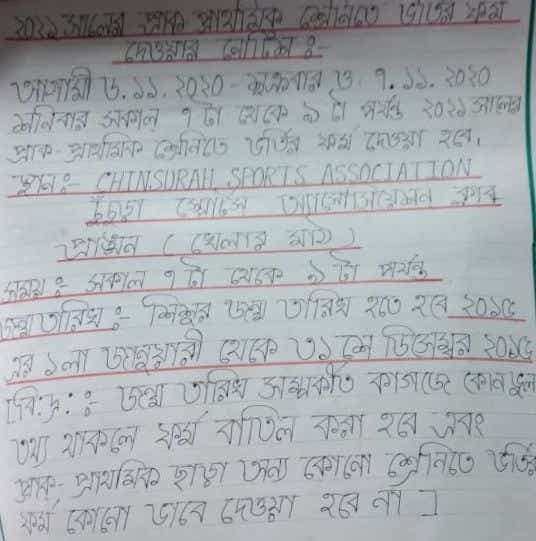 ২০২১ সালের প্রাক প্রাথমিক শ্রেনিতে ভর্তির ফর্ম
দেওয়ার নোটিশ ঃ-
আগামী ৬.১১.২০২০ - শুক্রবার ও ৭.১১.২০২০
শনিবার সকাল ৭ টা থেকে ৯ টা পর্যন্ত ২০২১ সালের
প্রাক-প্রাথমিক শ্রেনিতে ভর্তির ফর্ম দেওয়া হবে,
স্থান ঃ- CHINSURAH SPORTS ASSOCIATION
চুঁচুড়া স্পোর্টস অ্যাসোসিয়েশন ক্লাব
প্রাঙ্গন (খেলার মাঠ)
সময় ঃ সকাল ৭ টা থেকে ৯ টা পর্যন্ত
জন্ম তারিখ ঃ- শিশুর জন্ম তারিখ হতে হবে ২০১৫
এর ১লা জানুয়ারী থেকে ৩১ শে ডিসেম্বর ২০১৫
[বি:দ্র: ঃ জন্ম তারিখ সম্পর্কীত কাগজে কোন ভুল
তথ্য থাকলে ফর্ম বাতিল করা হবে এবং
প্রাক-প্রাথমিক ছাড়া অন্য কোনো শ্রেনিতে ভর্তির
ফর্ম কোনো ভাবে দেওয়া হবে না ]